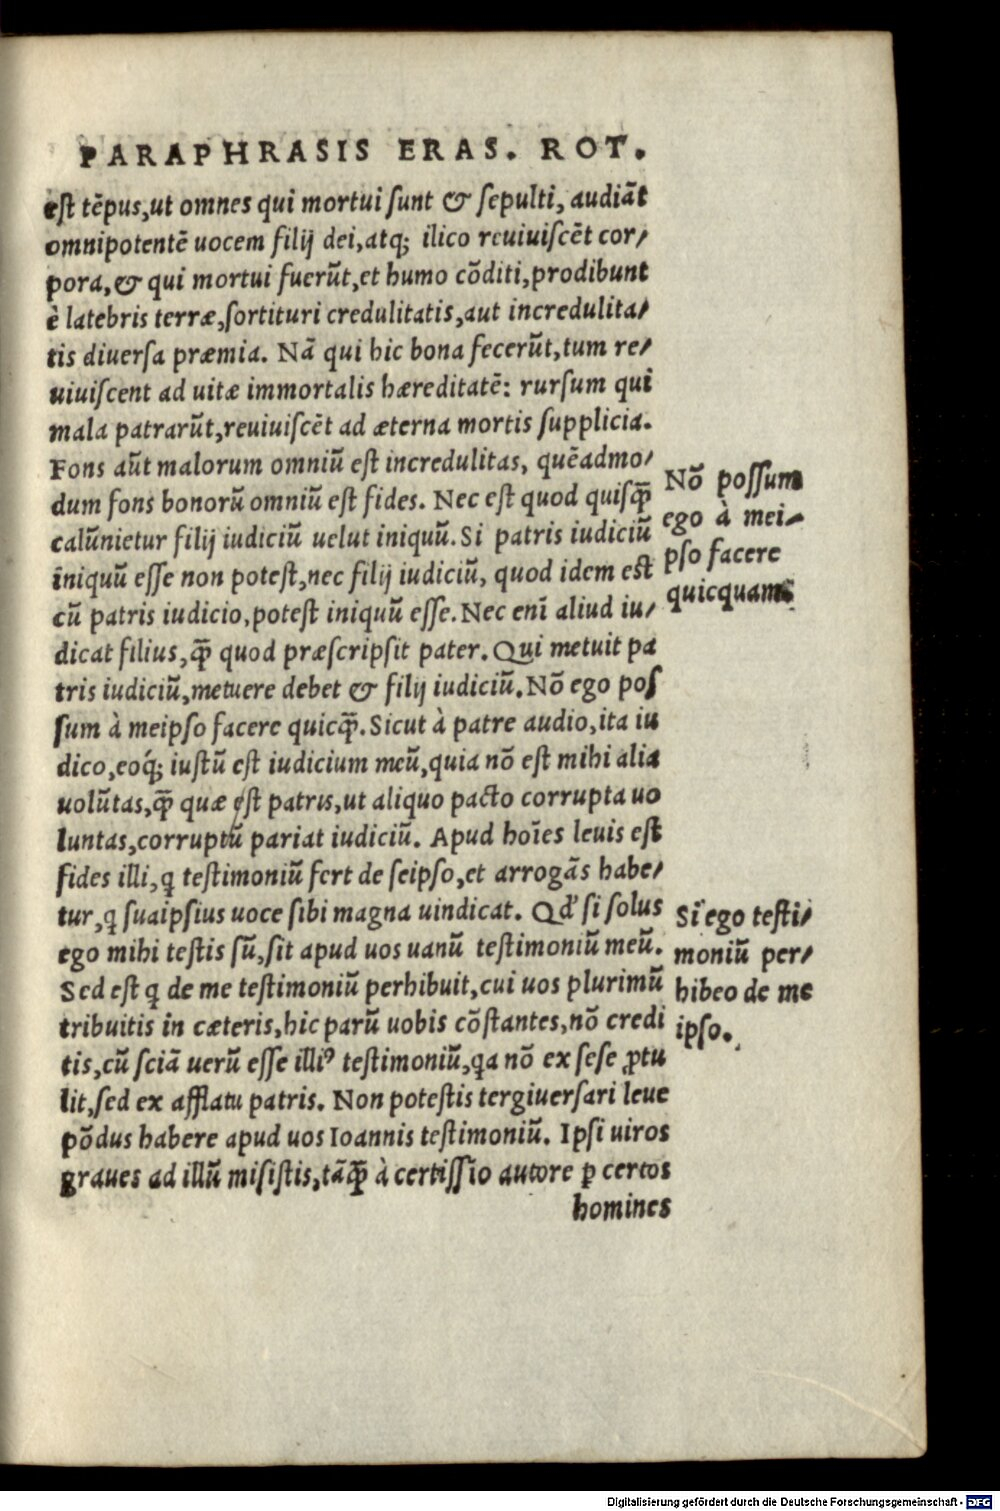 PARAPHRASIS ERAS. ROT.
eſt tēpus,ut omnes qui mortui ſunt & ſepulti, audiāt
omnipotentē uocem filij dei,atq; ilico reuiuiſcēt cor/
pora,& qui mortui fuerūt,et humo cōditi,prodibunt
è latebris terræ,ſortituri credulitatis,aut incredulita/
tis diuerſa præmia. Nā qui hic bona fecerūt,tum re/
uiuiſcent ad uitæ immortalis hæreditatē: rurſum qui
mala patrarūt,reuiuiſcēt ad æterna mortis ſupplicia.
Fons aūt malorum omniū eſt incredulitas, quēadmo/
dum fons bonorū omniū eſt fides. Nec eſt quod quiſq̄
calūnietur filij iudiciū uelut iniquū. Si patris iudiciū
iniquū eſſe non poteſt,nec filij iudiciū, quod idem eſt
cū patris iudicio,poteſt iniquū eſſe. Nec enī aliud iu/
dicat filius,q̄ quod præſcripſit pater. Qui metuit pa
tris iudiciū,metuere debet & filij iudiciū. Nō ego poſ
ſum à meipſo facere quicq̄. Sicut à patre audio,ita iu
dico,eoq́; iuſtū eſt iudicium meū,quia nō eſt mihi alia
uolūtas,q̄ quæ eſt patris,ut aliquo pacto corrupta uo
luntas,corruptū pariat iudiciū. Apud hoīes leuis eſt
fides illi,q̨ teſtimoniū fert de ſeipſo,et arrogās habe/
tur,q̨ ſuaipſius uoce ſibi magna uindicat. Qd' ſi ſolus
ego mihi teſtis ſū,ſit apud uos uanū teſtimoniū meū.
Sed eſt q̨ de me teſtimoniū perhibuit,cui uos plurimū
tribuitis in cæteris,hic parū uobis cōſtantes,nō credi
tis,cū ſciā uerū eſſe illiꝰ teſtimoniū,qa nō ex ſeſe ꝓtu
lit,ſed ex afflatu patris. Non poteſtis tergiuerſari leue
pōdus habere apud uos Ioannis teſtimoniū. Ipſi uiros
graues ad illū miſiſtis,tāq̄ à certiſſīo autore ꝑ certos
homines
Nō poſſum
ego à mei/
pſo facere
quicquam.
Si ego teſti/
moniū per/
hibeo de me
ipſo.
Digitalisierung gefördert durch die Deutsche Forschungsgemeinschaft - DFG